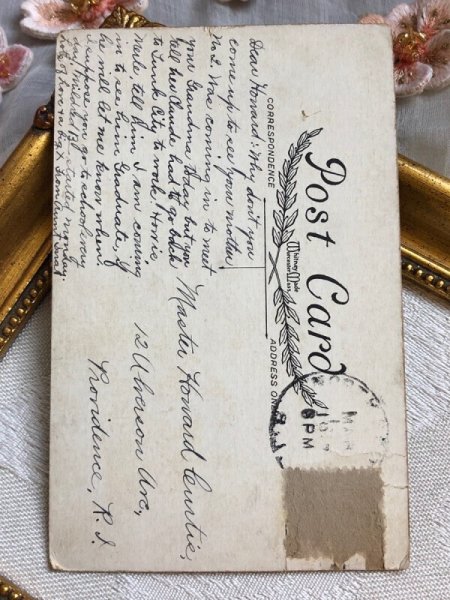 Post Card
CORRESPONDENCE
ADDRESS ON
Whitney Made
Worcester, Mass.
6 PM
Dear Howard: Why don't you
come up to see your mother
Was coming in to meet
your Grandma today but you
tell her Claude had to go back
to City to work.
tell him I am coming
in to see him Graduate, if
he will let me know when.
I suppose you go to school every
day. Mildred B. started monday.
lots of love a big X from Aunt
Master Howard Curtis,
12 Alverson Ave,
Providence, R.I.